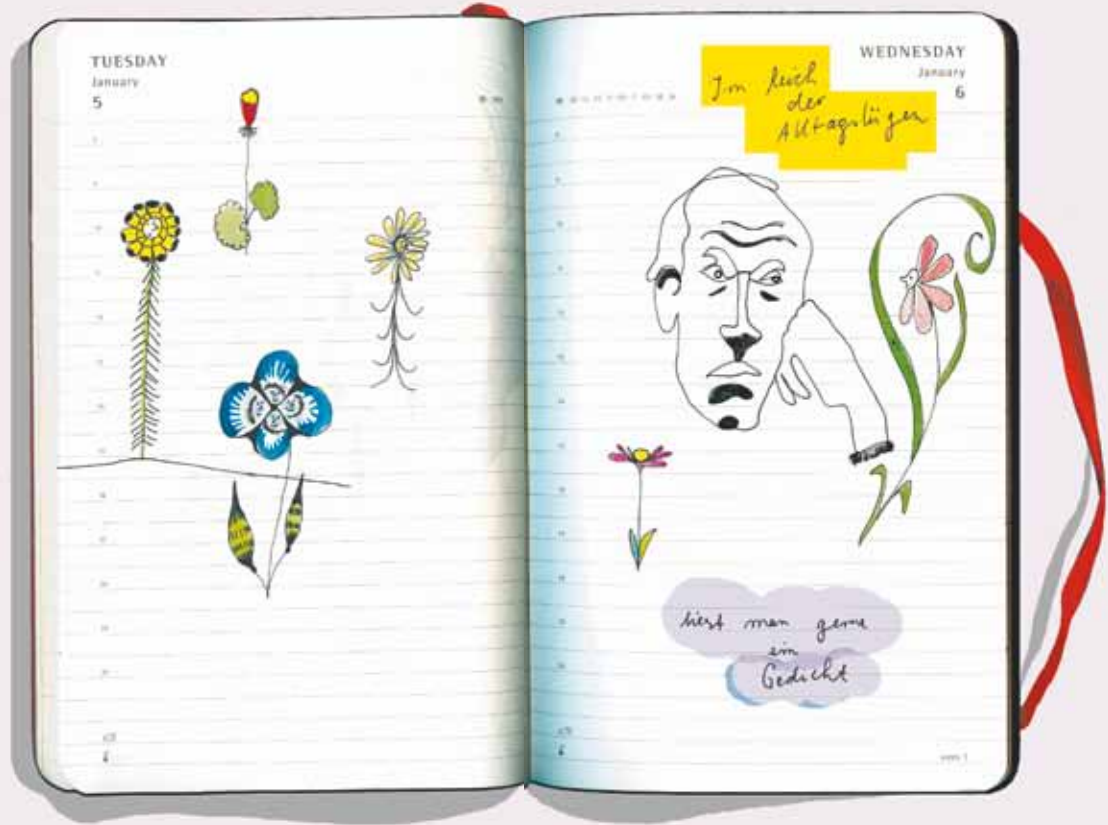 TUESDAY
January
5
WEDNESDAY
January
6
Im Reich
der
Alltagslügen
liest man gerne
ein
Gedicht